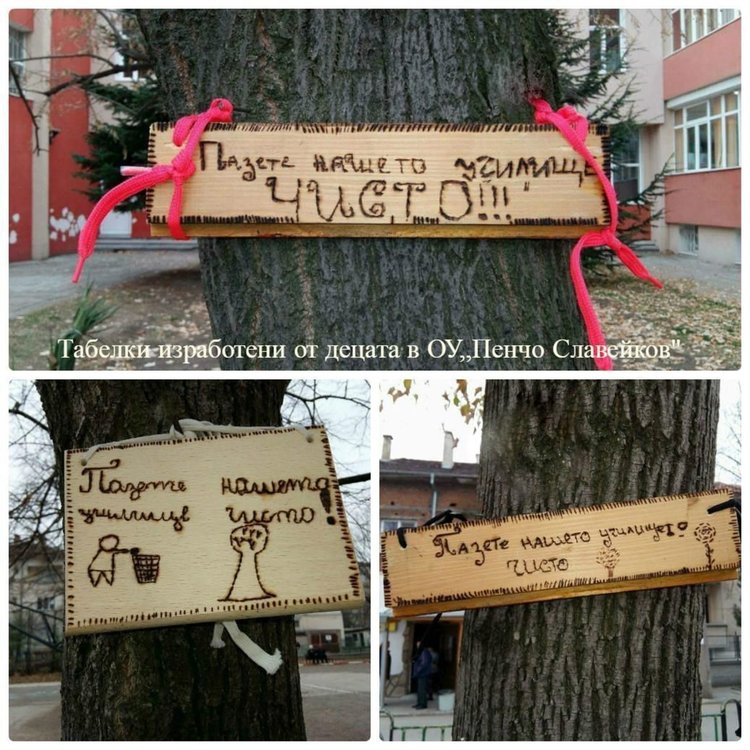 Пазете нашето училище
ЧИСТО!!!
Табелки изработени от децата в ОУ,,Пенчо Славейков"
Пазете нашето
училище чисто!
Пазете нашето училището
чисто